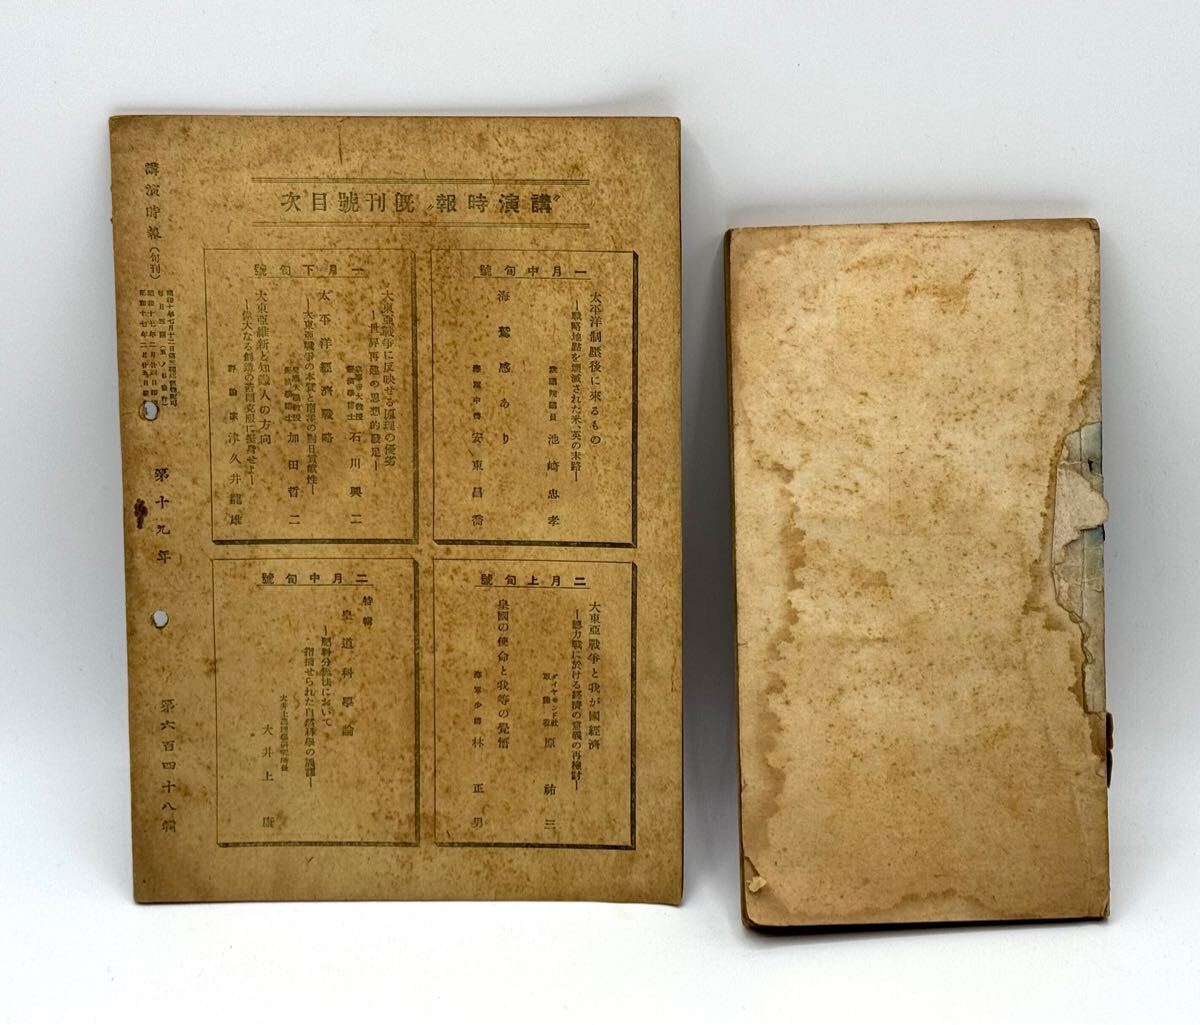 “講演時報” 既刊號目次
一月中旬號
太平洋制壓後に來るもの
―戰略地點を壞滅された米、英の末路―
衆議院議員 池崎忠孝
海鷲感あり
海軍中佐 安東昌喬
一月下旬號
大東亞戰爭に反映せる原理の優劣
―世界再建の思想的發足―
石川興二
太平洋經濟戰略
―大東亞戰爭の本質と南洋の對日貢獻性―
加田哲二
大東亞維新と知識人の方向
―偉大なる創造の苦悶克服に挺身せよ―
評論家 津久井龍雄
二月上旬號
大東亞戰爭と我が國經濟
―總力戰に於ける經濟の意義の再檢討―
ダイヤモンド社 原祐三
皇國の使命と我等の覺悟
海軍少將 林正男
二月中旬號
特輯
皇道科學論
―肥料分施法において
指摘せられた自然科學の誤謬―
大井上康
講演時報(旬刊)
第十九年
第六百四十八輯